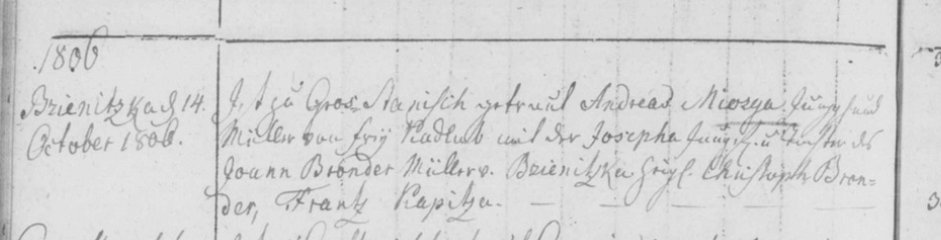 1806
Brienitzka d 14.
October 1806.
Ist zu Gros Stanisch getraut Andreas Miosga Jungg: und
Müller von Frey Kadlub mit der Josepha Jungf. u Tochter des
Joann Bronder Müller v. Brienitzka Christoph Bron=
der, Frantz Kapitza.